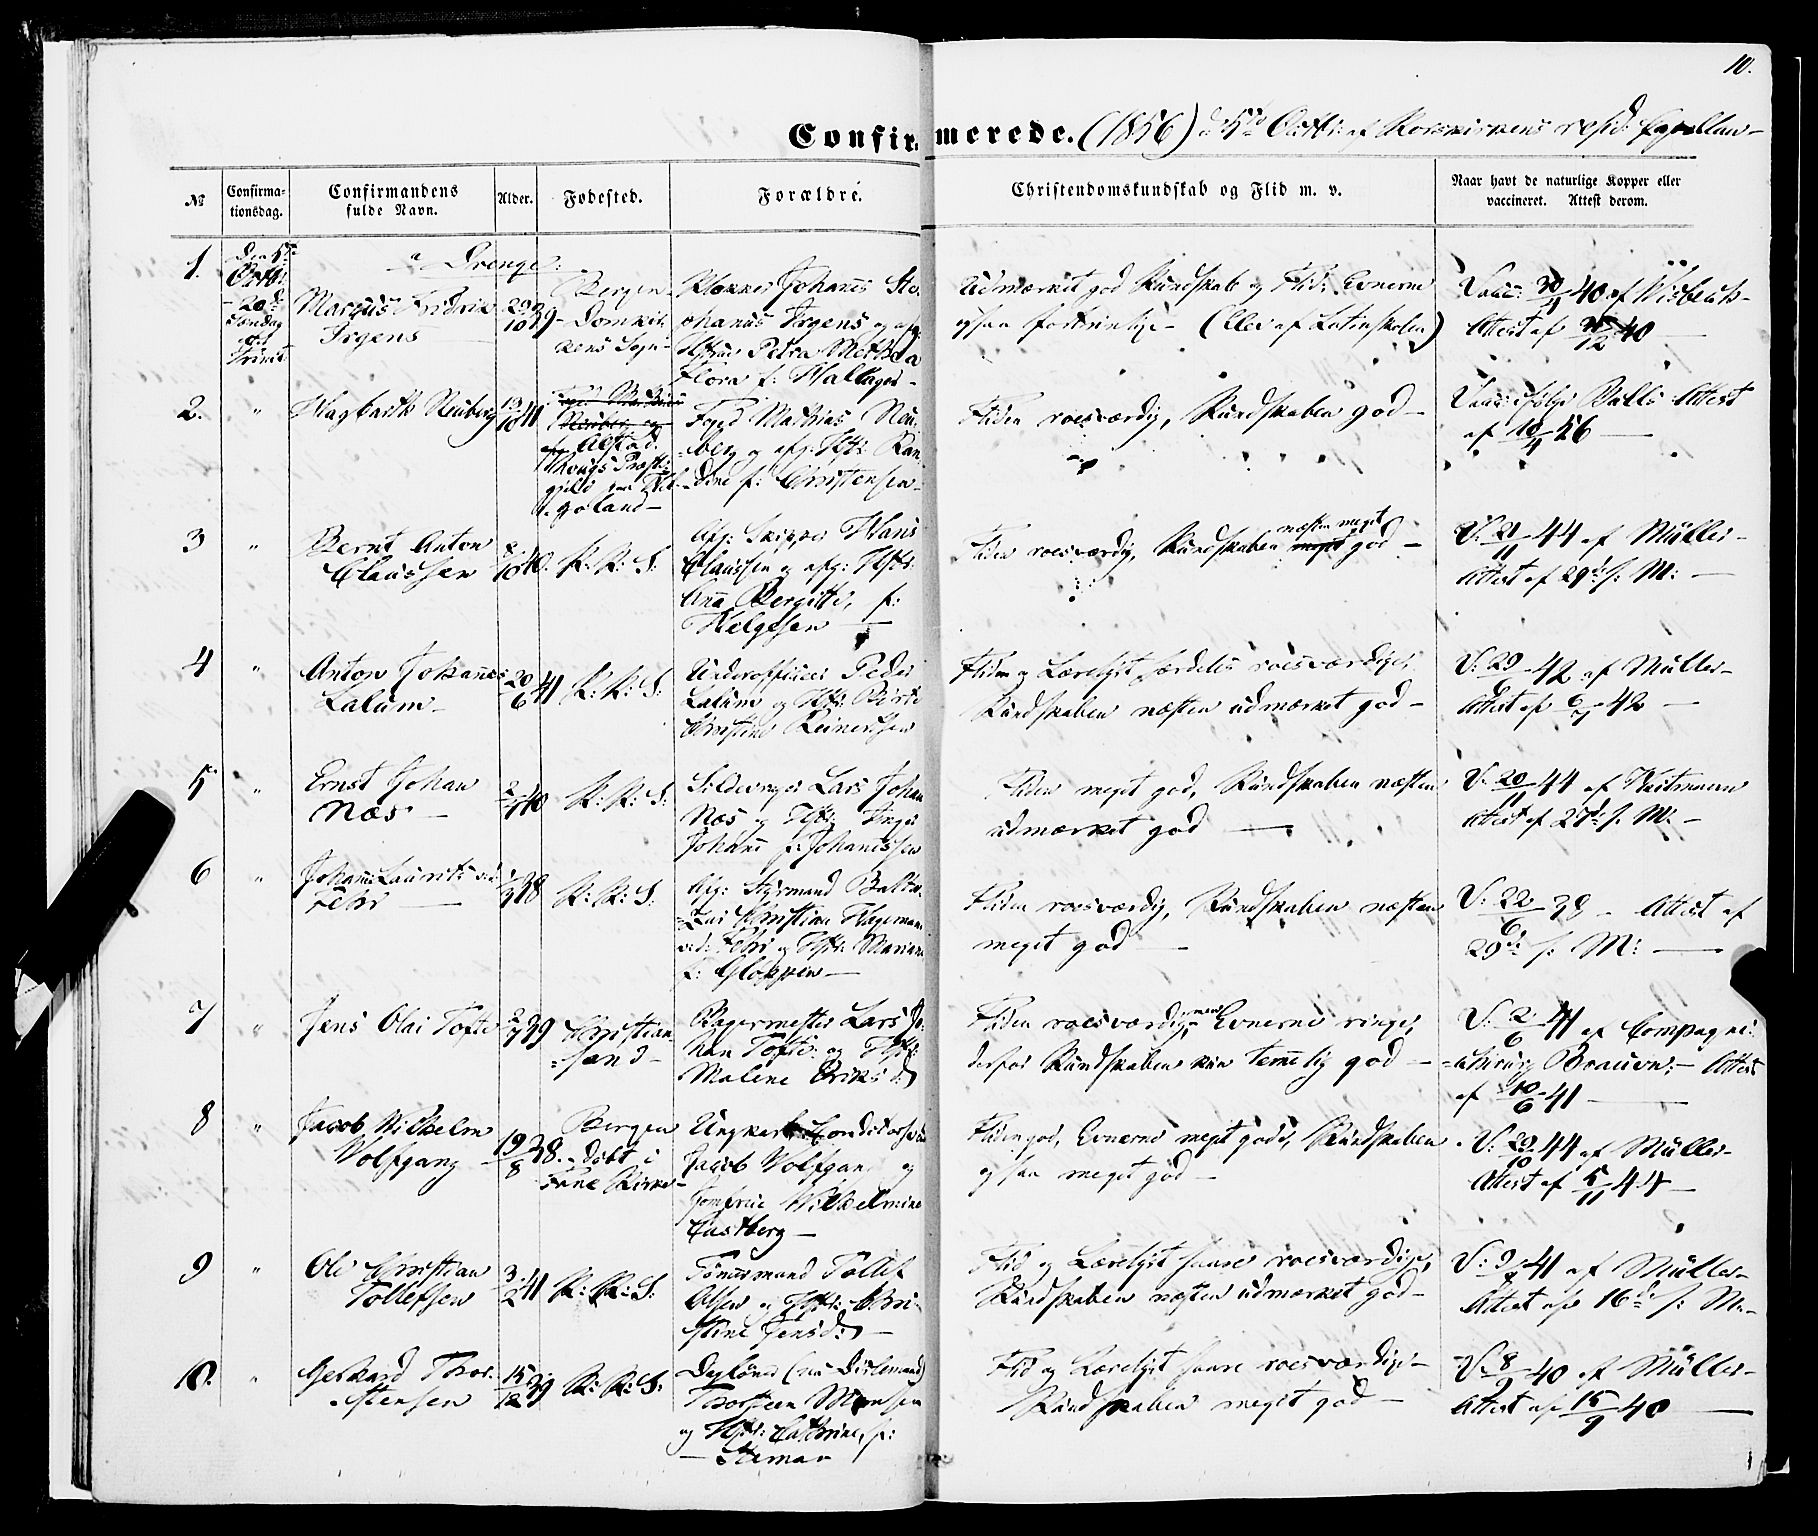 10.
Confirmerede. (1856) d: 5te Octbr: af Korskirkens resid: Capellan –
№ Confirmationsdag. Confirmandens fulde Navn. Alder. Fødested. Forældre. Christendomskundskab og Flid m. v. Naar havt de naturlige Kopper eller vaccineret. Attest derom.
1. Den 5te
Octb:
20de
Søndag
Trinit.
a Drenge:
Marcus Fredrik
Irgens
29/10 39
Bergen
Domkir-
kens Sogn
Johannes Ste-
phanus Irgens og
Hustrue Petra
Flora f:
Udmærket god Kundskab og Flid; Evnerne
ogsaa fortrinlige – (Elev af Latinskolen)
Vacc: 40 af Wisbech
Attest af /12 40
2. "
Hagbarth Neuberg
13/10 41
Alstad
Præste-
gjeld paa Hel-
goland –
Foged Mathias Neu-
berg og afg: Hstr: Ran-
dine f: Christensen –
Fliden roesværdig, Kundskaben god –
Vacc: ifølge Balls Attest
af 10/9 56 –
3 "
Bernt Anton
Claussen
8/10 40.
K: K: S:
Afg: Skipper Hans
Claussen og afg: Hstr:
Ana Bergitte, f:
Helgesen –
Fliden roesværdig, Kundskaben næsten meget god –
V: 21/11 44 af Müller –
Attest af 29de s: M: –
4 "
Anton Johannes
Lalum –
20/6 41
K: K: S:
Underofficer Peder
Lalum og Hstr: Birte
Christine Reinertsen
Fliden og Lærelyst særdeles roesværdige;
Kundskaben næsten udmærket god –
V: 29/6 42 af Müller –
Attest af 6/7 42 –
5 "
Ernst Johan
Næs –
2/7 40
K: K: S:
Sildevrager Lars Johan
Næs og Hstr: Inger
Johane f: Johannessen
Fliden meget god, Kundskaben næsten
udmærket god –
V: 20/11 44 af Heitmann
Attest af 27de s: M: –
6 "
Johan Laurits
Fehr –
38
K: K: S:
Afg: Styrmand Baltza-
zar Christian Hageman
Fehr og Hstr: Mariane
f: Gloppen –
Fliden roesværdig, Kundskaben næsten
meget god –
V: 22/6 39 – Attest af
29de s: M: –
7 "
Jens Olai Tofte
2/7 39
Christian-
sand –
Bagermester Lars Jo-
han Tofte og Hstr:
Malene Eriksd:
Fliden roesværdig, men Evnerne ringe,
derfor Kundskaben kun temelig god –
V: 2/6 41 af Compagnie-
chirurg Brauun; – Attest
af 10/6 41 –
8 "
Jacob Wilhelm
Wolfgang –
19/8 38.
Bergen
døbt i
Fane Kirke –
Ungkarl
Jacob Wolfgang og
Jomfrue Wilhelmine
Castberg –
Fliden god, Evnerne meget gode, Kundskaben
ogsaa meget god –
V: 29/10 44 af Müller –
Attest af 5/11 44 –
9 "
Ole Christian
Tollefsen
3/2 41
K: K: S:
Tømmermand Tollef
Olsen og Hstr: Chri-
stine Jensd: –
Flid og Lærelyst saare roesværdige,
Kundskaben næsten udmærket god –
V: 9/7 41 af Müller –
Attest af 16de s: M: –
10. "
Gerhard Thor-
stensen
15/12 39
K: K: S:
Dagløner
Thorsteen Monsen
og Hstr: Cathrine, f:
– Steman
Flid og Lærelyst saare roesværdige –
Kundskaben meget god –
V: 8/9 40 af Müller –
Attest af 15/9 40 –